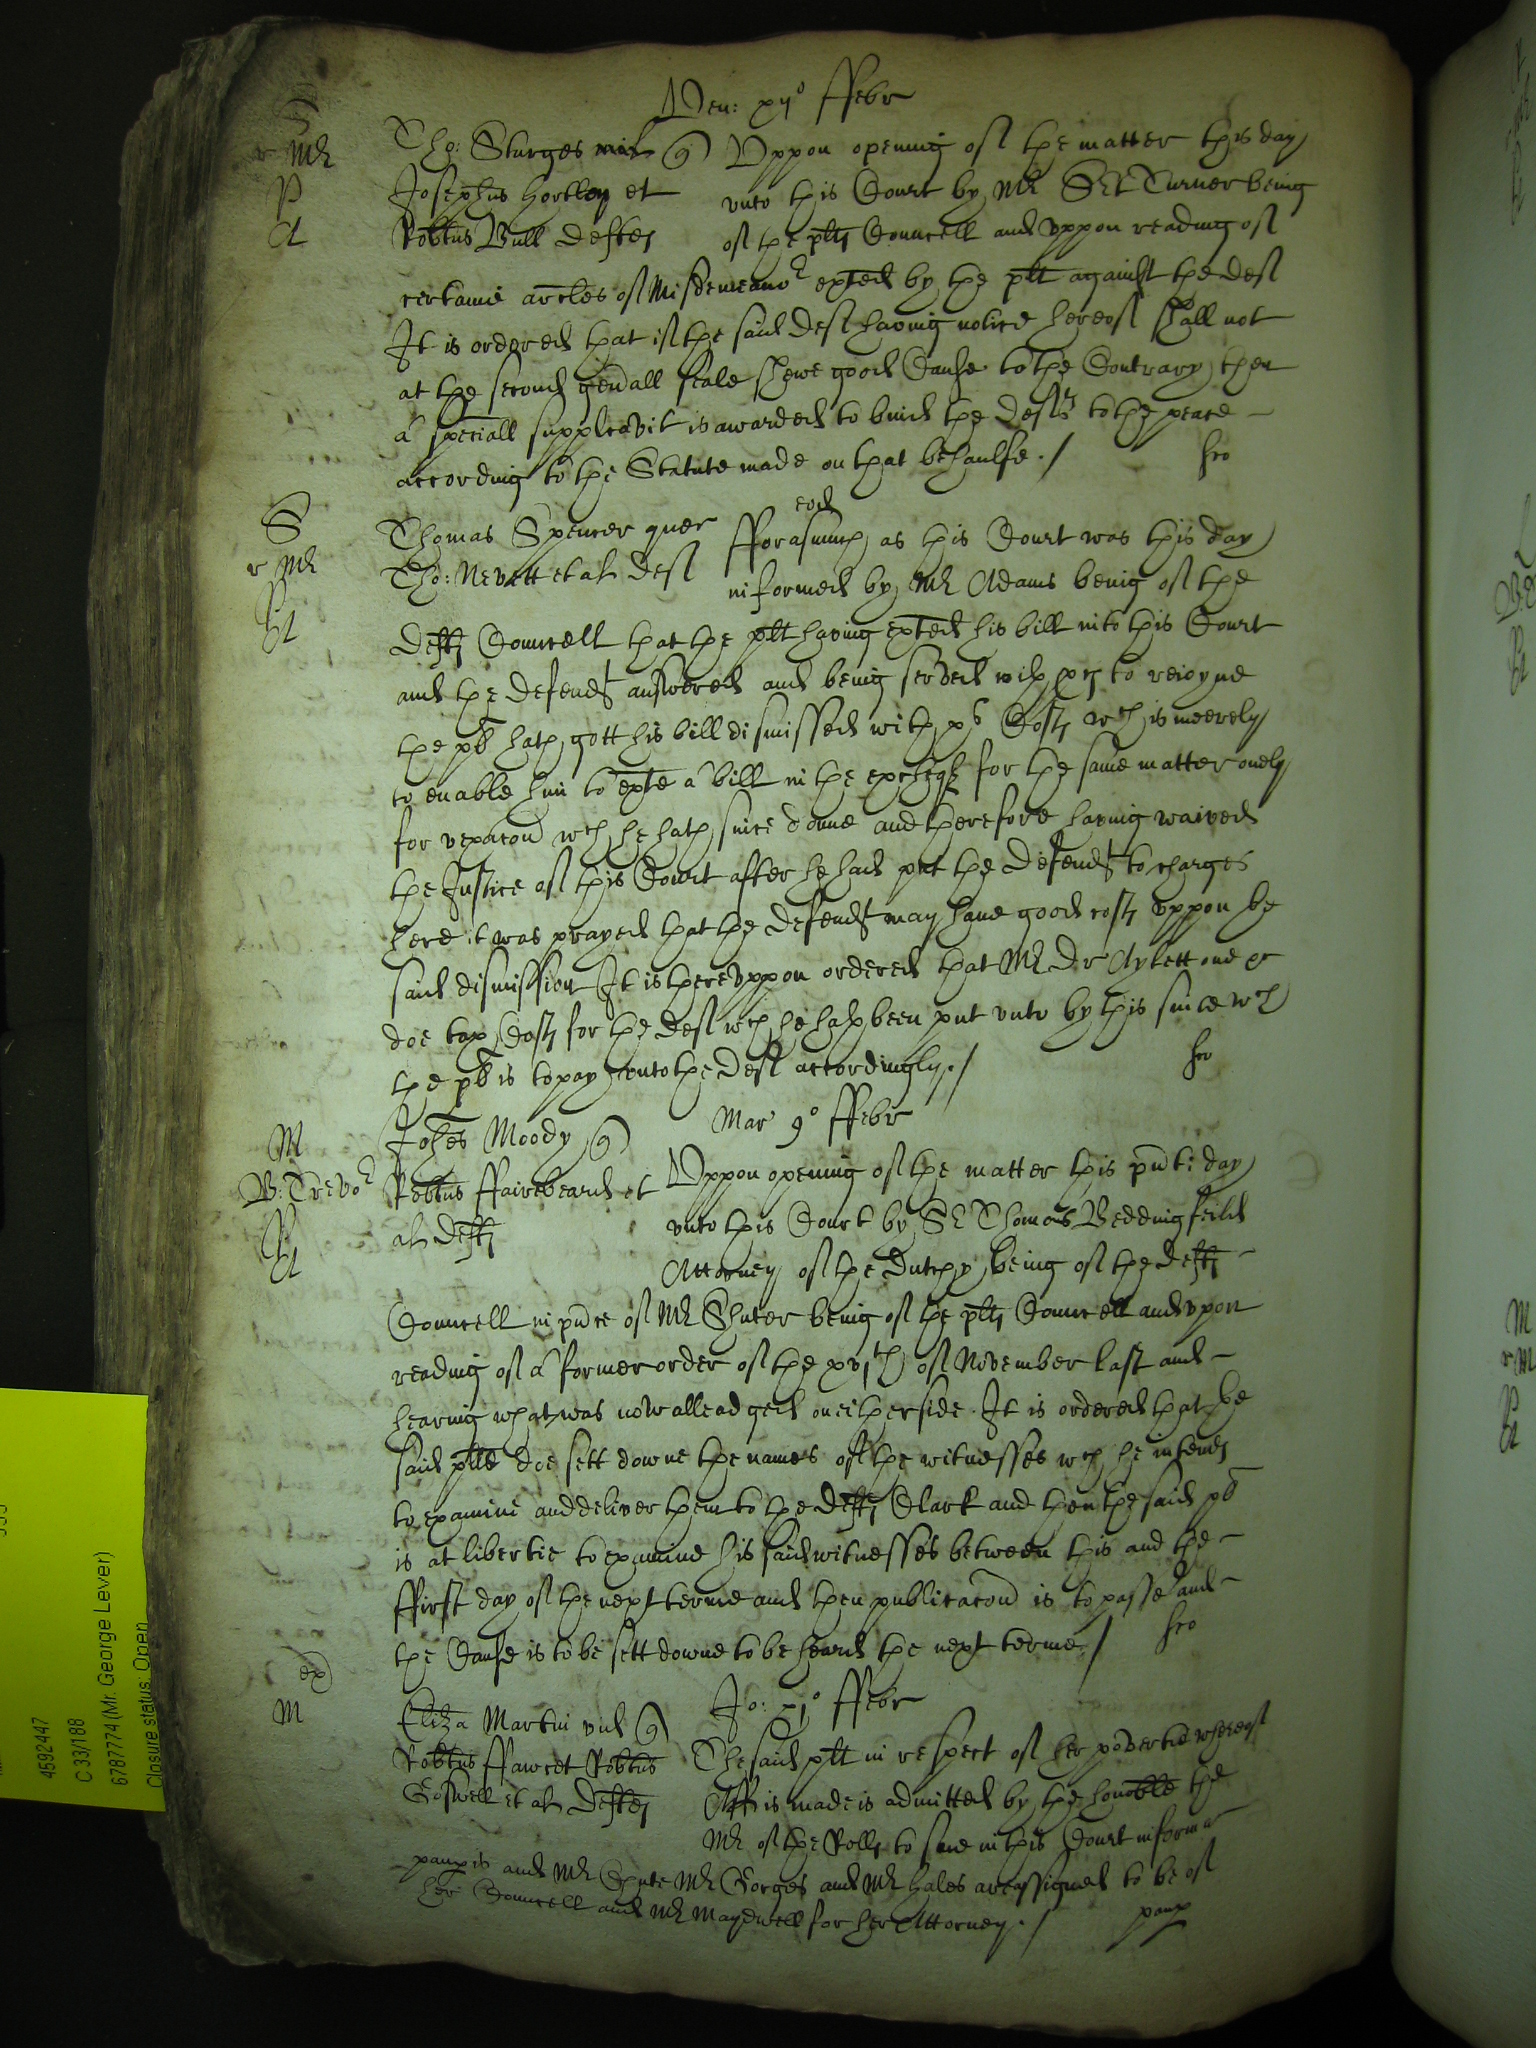 Ven: xijº ffebr
S
r Mr
P
A
Tho: Sturges mil q
Josephus Hortley et
Robtus Bull deftes
Vppon opening of the matter this day
vnto this Court by Mr Sct Turner being
of the plts Councell and vppon reading of
certaine artcles of Misdemeanor exted by the plt against the def
It is ordered that if the said def having notice hereof shall not
at the second gen'all seale shewe good Cause to the Contrary then
a speciall supplicavit is awarded to bind the defts to the peace
according to the Statute made on that behaulfe ./
hco
S
r Mr
P
A
Thomas Spencer quer
Tho: Nevett et al def
eod
fforasmuch as this Court was this day
informed by Mr Adams being of the
defts Councell that the plt having exted his bill into this Court
and the defendt answered and being served with pces to reioyne
the pl hath gott his bill dismissed with xs Costs wch is meerely
to enable him to exte a bill in the excheqr for the same matter onely
for vexacon wch he hath since donne and therefore having waived
the Justice of this Court after he had put the defendt to charges
here it was prayed that the defendt may have good costs vppon the
said dismission It is therevppon ordered that Mr Dr Aylett one &c
doe tax Costs for the def wch he hath been put vnto by this suite wch
the pl is to pay vnto the deft accordingly ./
hco
Mar 9º ffebr
M
B: Trevor
P
A
Johes Moody q
Robtus ffairebeard et
al defts
Vppon opening of the matter this pnte day
vnto this Court by Sr Thomas Beddingfeild
Attorney of the Dutchy being of the defts
Councell in pnce of Mr Shuter being of the plts Councell and vpon
reading of a former order of the xvjth of November last and
hearing what was now alleadged on either side. It is ordered that the
said plte doe sett downe the names of the witnesses wch he intends
to examine and deliver them to the defts Clark and then the said pl
is at libertie to examine his said witnesses betweene this and the
ffirst day of the next terme and then publicacon is to passe and
the Cause is to be sett downe to be heard the next terme /
hco
ex
M
Jo: xjº ffebr
Eliza Martin vid q
Robtus ffawcet Robtus
Goswell et al deftes
The said plt in respect of her povertie whereof
Aff is made is admitted by the honoble the
Mr of the Rolls to sue in this Court in forma
paupis and Mr Chute Mr Gorges and Mr Hales are assigned to be of
her Councell and Mr Maydwell for her Attorney ./
paup
4592447
C 33/188
6787774 (Mr. George Lever)
Closure status: Open